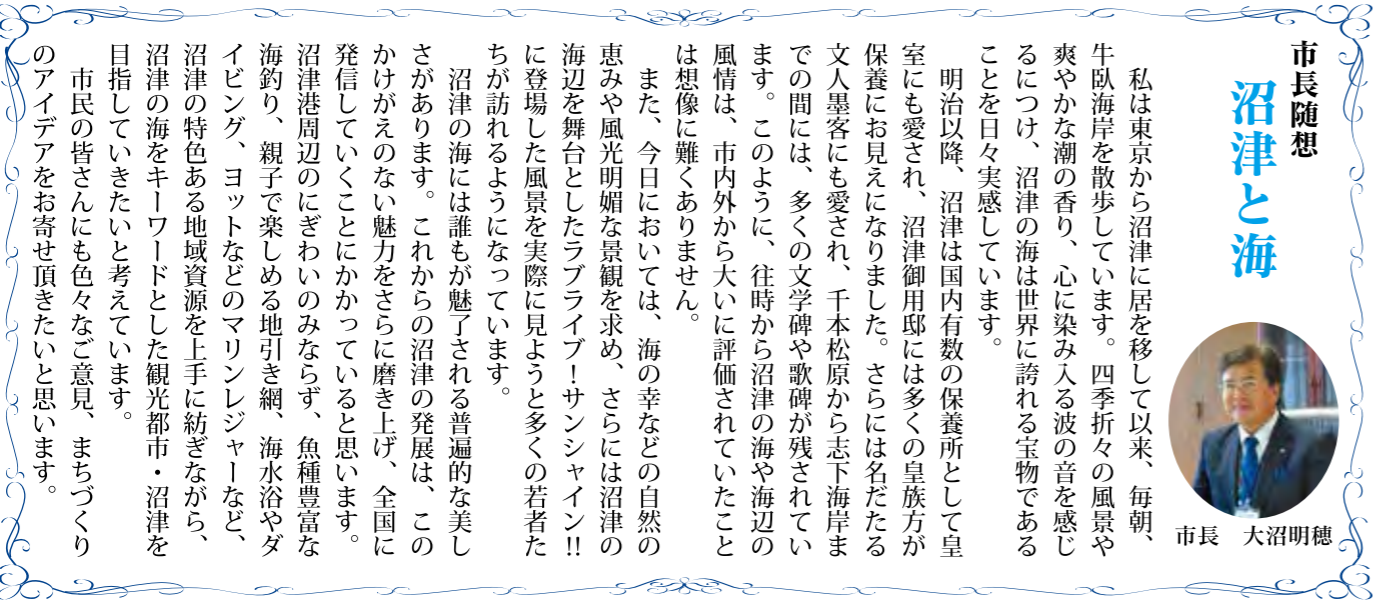 市長随想
沼津と海
市長　大沼明穂
　私は東京から沼津に居を移して以来、毎朝、
牛臥海岸を散歩しています。四季折々の風景や
爽やかな潮の香り、心に染み入る波の音を感じ
るにつけ、沼津の海は世界に誇れる宝物である
ことを日々実感しています。
　明治以降、沼津は国内有数の保養所として皇
室にも愛され、沼津御用邸には多くの皇族方が
保養にお見えになりました。さらには名だたる
文人墨客にも愛され、千本松原から志下海岸ま
での間には、多くの文学碑や歌碑が残されてい
ます。このように、往時から沼津の海や海辺の
風情は、市内外から大いに評価されていたこと
は想像に難くありません。
　また、今日においては、海の幸などの自然の
恵みや風光明媚な景観を求め、さらには沼津の
海辺を舞台としたラブライブ！サンシャイン!!
に登場した風景を実際に見ようと多くの若者た
ちが訪れるようになっています。
　沼津の海には誰もが魅了される普遍的な美し
さがあります。これからの沼津の発展は、この
かけがえのない魅力をさらに磨き上げ、全国に
発信していくことにかかっていると思います。
沼津港周辺のにぎわいのみならず、魚種豊富な
海釣り、親子で楽しめる地引き網、海水浴やダ
イビング、ヨットなどのマリンレジャーなど、
沼津の特色ある地域資源を上手に紡ぎながら、
沼津の海をキーワードとした観光都市・沼津を
目指していきたいと考えています。
　市民の皆さんにも色々なご意見、まちづくり
のアイデアをお寄せ頂きたいと思います。